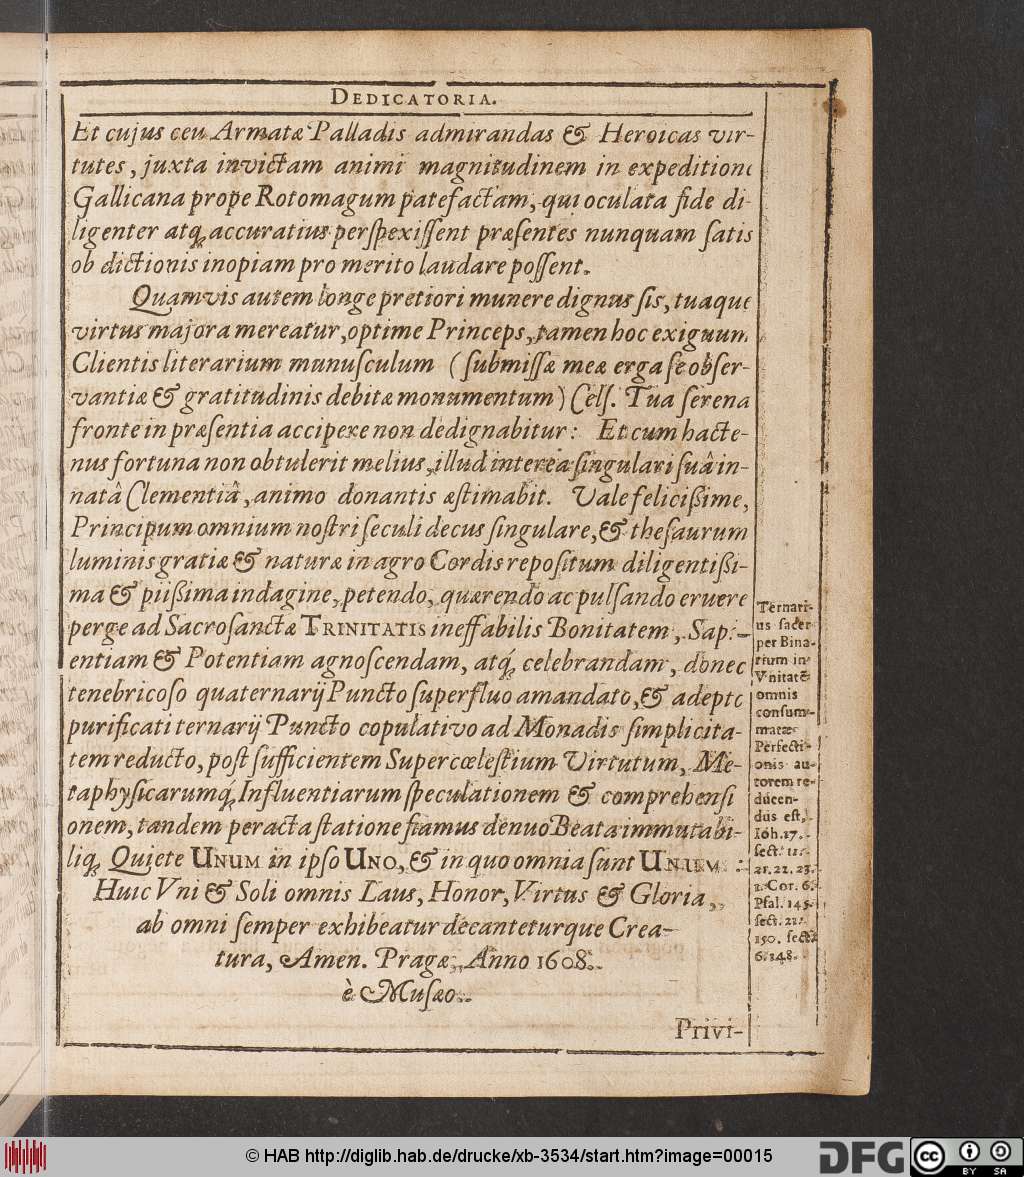 DEDICATORIA.
Et cujus ceu Armatæ Palladis admirandas & Heroicas vir-
tutes, juxta invictam animi magnitudinem in expeditione
Gallicana prope Rotomagum patefactam, qui oculata fide di-
ligenter atq́; accuratius perſpexiſſent præſentes nunquam ſatis
ob dictionis inopiam pro merito laudare poſſent.
Quamvis autem longe pretiori munere dignus ſis, tuaque
virtus majora mereatur, optime Princeps, tamen hoc exiguum
Clientis literarium munuſculum (ſubmiſſæ meæ erga ſe obſer-
vantiæ & gratitudinis debitæ monumentum) Celſ. Tua ſerena
fronte in præſentia accipere non dedignabitur: Et cum hacte-
nus fortuna non obtulerit melius, illud interea ſingulari ſuâ in-
natâ Clementiâ, animo donantis æſtimabit. Vale feliciſſime,
Principum omnium noſtri ſeculi decus ſingulare, & theſaurum
luminis gratiæ & naturæ in agro Cordis repoſitum diligentiſſi-
ma & piiſſima indagine, petendo, quærendo ac pulſando eruere
perge ad Sacroſanctæ TRINITATIS ineffabilis Bonitatem, Sapi-
entiam & Potentiam agnoſcendam, atq́; celebrandam, donec
tenebricoſo quaternarij Puncto ſuperfluo amandato, & adepto
purificati ternarij Puncto copulativo ad Monadis ſimplicita-
tem reducto, poſt ſufficientem Supercœleſtium Virtutum, Me-
taphyſicarumq́; Influentiarum ſpeculationem & comprehenſi
onem, tandem peracta ſtatione fiamus denuo Beata immutabi-
liq́; Quiete UNUM in ipſo UNO, & in quo omnia ſunt UNUM:
Huic Vni & Soli omnis Laus, Honor, Virtus & Gloria,
ab omni ſemper exhibeatur decanteturque Crea-
tura, Amen. Pragæ, Anno 1608.
è Muſæo.
Ternari-
us ſacer
per Bina-
rium in
Vnitatē
omnis
conſum-
matæ
Perfecti-
onis au-
torem re-
ducen-
dus eſt,
Ioh. 17.
ſect. 11.
21. 22. 23.
1. Cor. 6.
Pſal. 145.
ſect. 21.
150. ſect.
6. 148.
Privi-
© HAB http://diglib.hab.de/drucke/xb-3534/start.htm?image=00015
DFG
cc
BY SA